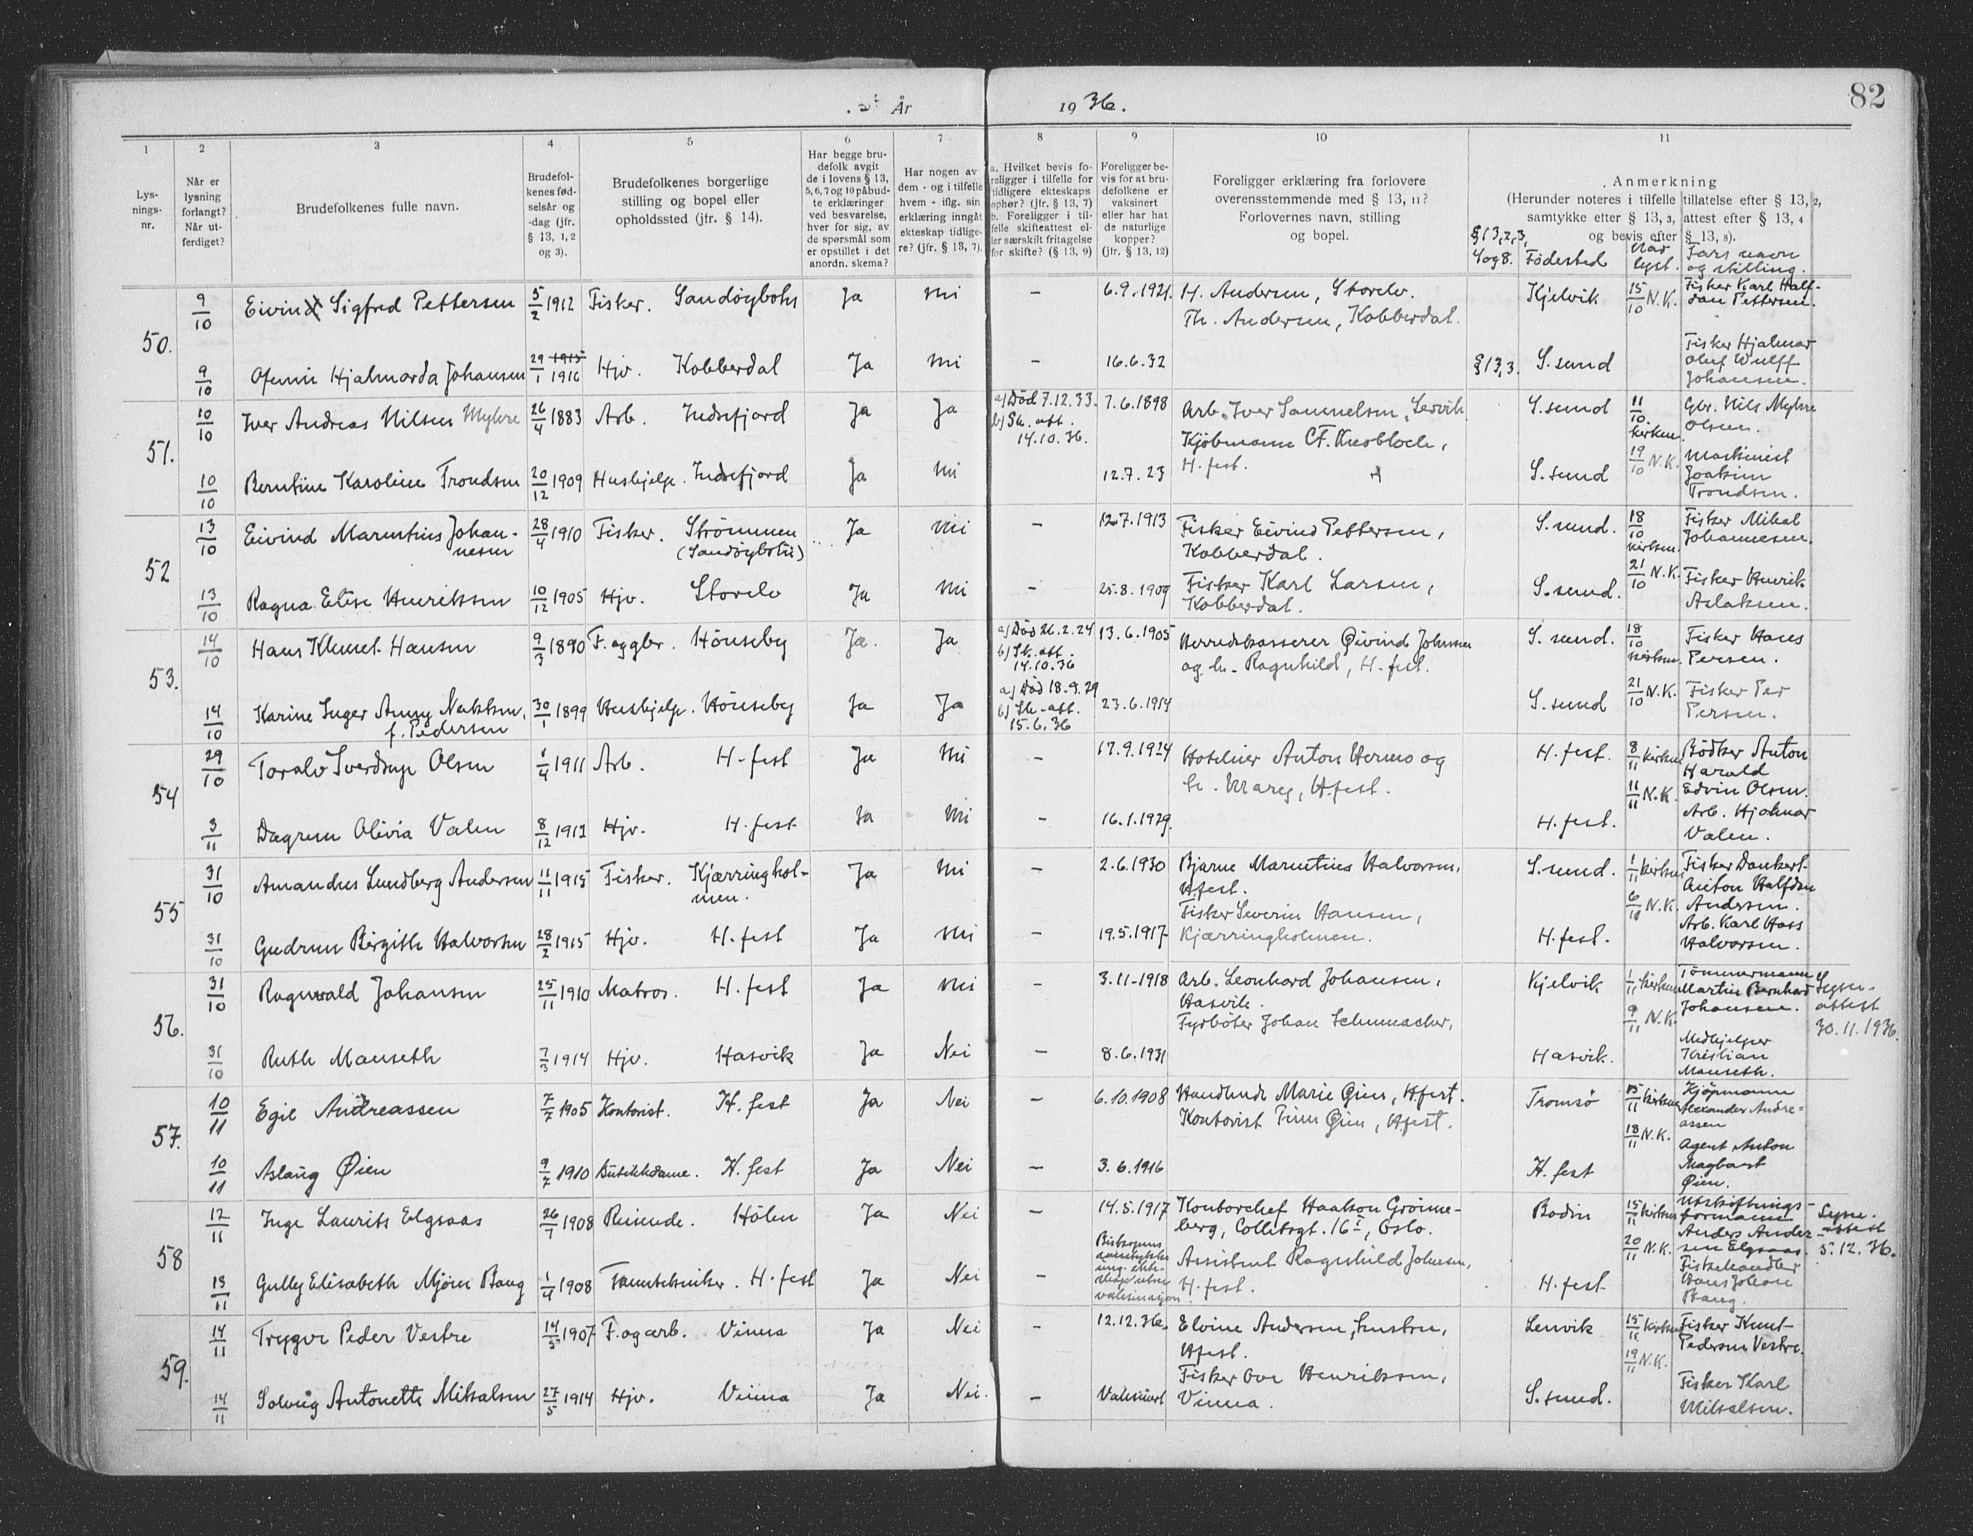 År 1936.
82
1 2 3 4 5 6 7 8 9 10 11
Lys-
nings-
nr.
Når er
lysning
forlangt?
Når ut-
ferdiget?
Brudefolkenes fulle navn.
Brudefol-
kenes fød-
selsår og
-dag (jfr.
§ 13, 1, 2
og 3).
Brudefolkenes borgerlige
stilling og bopel eller
opholdssted (jfr. § 14).
Har begge bru-
defolk avgit
de i lovens § 13,
5, 6, 7 og 10 påbud-
te erklæringer
ved besvarelse,
hver for sig, av
de spørsmål som
er opstillet i det
anordn. skema?
Har nogen av
dem - og i tilfelle
hvem - iflg. sin
erklæring inngått
ekteskap tidlige-
re? (jfr. § 13, 7).
a. Hvilket bevis fo-
religger i tilfelle for
tidligere ekteskaps
ophør? (jfr. § 13, 7)
b. Foreligger i til-
felle skifteattest el-
ler særskilt fritagelse
for skifte? (§ 13, 9)
Foreligger be-
vis for at bru-
defolkene er
vaksinert
eller har hat
de naturlige
kopper?
(jfr. § 13, 12)
Foreligger erklæring fra forlovere
overensstemmende med § 13, 11?
Forlovernes navn, stilling
og bopel.
Anmerkning
(Herunder noteres i tilfelle tillatelse efter § 13, 2,
samtykke efter § 13, 3, attest efter § 13, 4
og bevis efter § 13, 8).
§ 13, 2, 3,
4 og 8. Fødested Når lyst. Fars navn og stilling.
50.
9/10 Eivind Sigfred Pettersen 5/2 1912 Fisker. Sandøybotn Ja Nei — 6.9.1921. H. Andersen, Storelv. Kjelvik 15/10 N.K. Fisker Karl Half-
dan Pettersen.
Th. Andersen, Kobberdal.
9/10 Hjalmarda Johansen 29/1 1915 1916 Hjv. Kobberdal Ja Nei — 16.6.32 § 13, 3. S. sund Fisker Hjalmar
Oluf Wulff
Johansen.
51.
10/10 Iver Andreas Nilsen Myhre 26/4 1883 Arb. Indrefjord Ja Ja a) Død 7.12.33. b) Sk. att. 14.10.36. 7.6.1898 Arb. Iver Samuelsen, Lervik S. sund 11/10 kirken Gbr. Nils Myhre
Olsen.
Kjøbmann C.F. Knobloch,
H. fest.
10/10 Berntine Karoline Trondsen 20/12 1909 Hushjelp. Indrefjord Ja Nei 12.7.23 S. sund 19/10 N.K. Maskinist
Joakim
Trondsen.
52
13/10 Eivind Marentius Johan-
nesen 28/4 1910 Fisker. Strømmen
(Sandøybotn) Ja Nei — 12.7.1913 Fisker Eivind Pettersen,
Kobberdal. S. sund. 18/10 kirken. Fisker Mikal
Johannesen.
13/10 Ragna Elise Henriksen 10/12 1905 Hjv. Storelv Ja Nei — 25.8.1909 Fisker Karl Larsen,
Kobberdal. S. sund. 21/10 N.K. Fisker Henrik
Aslaksen.
53.
14/10 Hans Klemet Hansen 9/3 1890 F. og gbr. Hønseby Ja. Ja a) Død 26.2.24 b) Sk. att. 14.10.36 13.6.1905 Herredskasserer Øivind Johnsen
og h. Ragnhild, H-fest. S. sund. 18/10 kirken. Fisker Hans
Persen.
14/10 Karine Inger Anny
f. Pedersen 30/1 1899 Hushjelp. Hønseby Ja Ja a) Død 18.9.29 b) Sk. att. 15.6.36 23.6.1914 S. sund 21/10 N.K. Fisker Per
Persen.
54
29/10 Toralv Sverdrup Olsen 1/4 1911 Arb. H-fest Ja Nei — 17.9.1924 Hotelier Anton Hermo og
h. Mary, H.fest. H. fest. 8/11 kirken Bødker Anton
Harald
Edvin Olsen.
3/11 Dagrun Olivia Valen 8/12 1912 Hjv. H. fest Ja Nei — 16.1.1929. H. fest. 11/11 N.K. Arb. Hjalmar
Valen.
55
31/10 Amandus Lundberg Andersen 11/11 1915 Fisker. Kjærringhol-
men. Ja Nei — 2.6.1930 Bjarne Marentius Halvorsen,
H.fest. S. sund. 1/11 kirken Fisker Dankert
Anton Halfdan
Andersen.
31/10 Gudrun Birgithe Halvorsen 28/2 1915 Hjv. H. fest Ja Nei — 19.5.1917 Fisker Severin Hansen,
Kjærringholmen. H. fest. 6/10 N.K. Arb. Karl Hass
Halvorsen.
56.
31/10 Ragnvald Johansen 25/11 1910 Matros. H. fest Ja Nei — 3.11.1918 Arb. Leonhard Johansen,
Hasvik. Kjelvik 1/11 kirken Tømmermann
Martin Bernhard
Johansen. Lysn.-
attest
30.11.1936.
31/10 Ruth Manseth 7/3 1914 Hjv. Hasvik Ja Nei — 8.6.1931 Fyrbøter Johan Schumacher, Hasvik. 9/11 N.K. Medhjelper
Kristian
Manseth.
57.
10/11 Egil Andreassen 7/7 1905 Kontorist. H. fest Ja Nei — 6.10.1908 Handlende Marie Øien, H.fest. Tromsø 15/11 kirken Kjøpmann
Alexander Andre-
assen
Kontorist Finn Øien, H.fest.
10/11 Aslaug Øien 9/7 1910 Butikkdame. H. fest Ja Nei — 3.6.1916 H. fest 18/11 N.K. Agent Anton
Magbart
Øien.
58
12/11 Inge Laurits Elgsaas 26/7 1908 Reisende. Hölen Ja Nei — 14.5.1917 Kontorchef Haakon Grønne-
berg, Colletsgt. 16 I, Oslo. Bodin 15/11 kirken Utskiftnings-
formann
Anders Ander-
sen Elgsaas. Lysn.-
attest
5.12.36.
13/11 Gully Elisabeth Mjøen Bang 1/4 1908 Tanntekniker. H. fest Ja Nei — Biskopens
samtykke
inng. ekte-
skap uten
vaksinasjon. Assistent Ragnhild Johnsen,
H. fest. H. fest. 20/11 N.K. Fiskehandler
Hans Johan
Bang.
59.
14/11 Trygve Peder Vestre 14/5 1907 F. og arb. Vinna Ja Nei — 12.12.36. Elvine Andersen, hustru,
H.fest. Lenvik 15/11 kirken Fisker Knut
Pedersen Vestre.
14/11 Solveig Antonette Mikalsen 27/5 1914 Hjv. Vinna Ja Nei. — Vaksinert Fisker Ove Henriksen,
Vinna. S. sund. 19/11 N.K. Fisker Karl
Mikalsen.